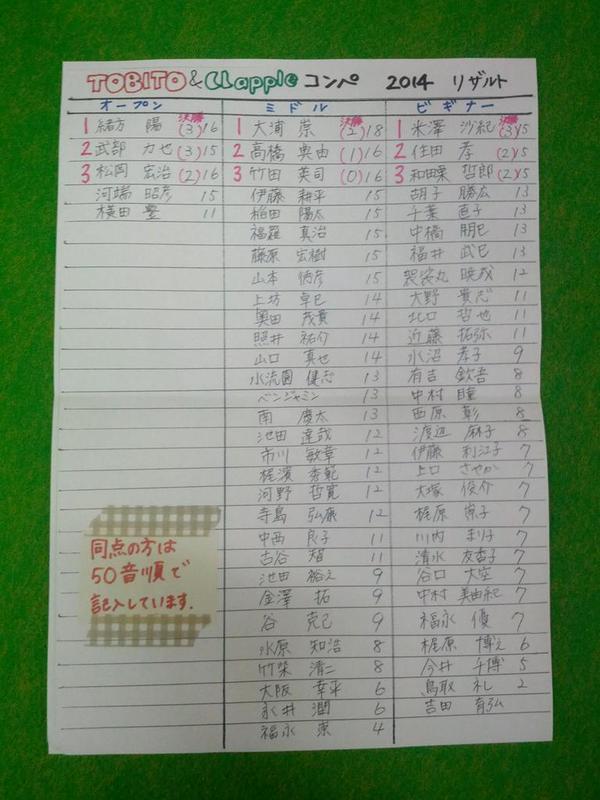 TOBITO & CLapple コンペ 2014 リザルト
オープン
1 緒方 陽 決勝(3)16
2 武部 力也 (3)15
3 松岡 宏治 (2)16
河端 昭彦 15
横田 豊 11
ミドル
1 大浦 崇 決勝(2)18
2 高橋 奥由 (1)16
3 竹田 英司 (0)16
伊藤 耕平 15
稲田 陽太 15
福羅 真治 15
藤原 宏樹 15
山本 炳彦 15
上坊 卓巳 14
奥田 茂貴 14
照井 祐介 14
山口 真也 14
水流園 健志 13
ベンジャミン 13
南 慶太 13
池田 達哉 12
市川 敏章 12
梶濱 秀範 12
河野 哲寛 12
寺島 弘康 12
中西 良子 11
古谷 智 11
池田 裕之 9
金澤 拓 9
谷 克己 9
水原 知浩 8
竹栄 清二 8
大阪 幸平 6
永井 潤 6
福永 崇 4
ビギナー
1 米澤 沙紀 決勝(3)15
2 住田 孝 (2)15
3 和田栗 哲郎 (2)15
胡子 勝広 13
千葉 直子 13
中橋 朋巳 13
福井 武巳 13
袈裟丸 暁哉 12
大野 貴志 11
北口 哲也 11
近藤 拓弥 11
水沼 孝子 9
有吉 欽吾 8
中村 瞳 8
西原 彰 8
渡辺 麻子 8
伊藤 利江子 7
上口 さやか 7
大塚 俊介 7
梶原 崇子 7
川内 まり子 7
清水 友香子 7
谷口 大空 7
中村 美由紀 7
福永 優 7
梶原 博之 6
今井 千博 5
鳥取 礼 2
吉田 育弘
同点の方は
50音順で
記入しています.